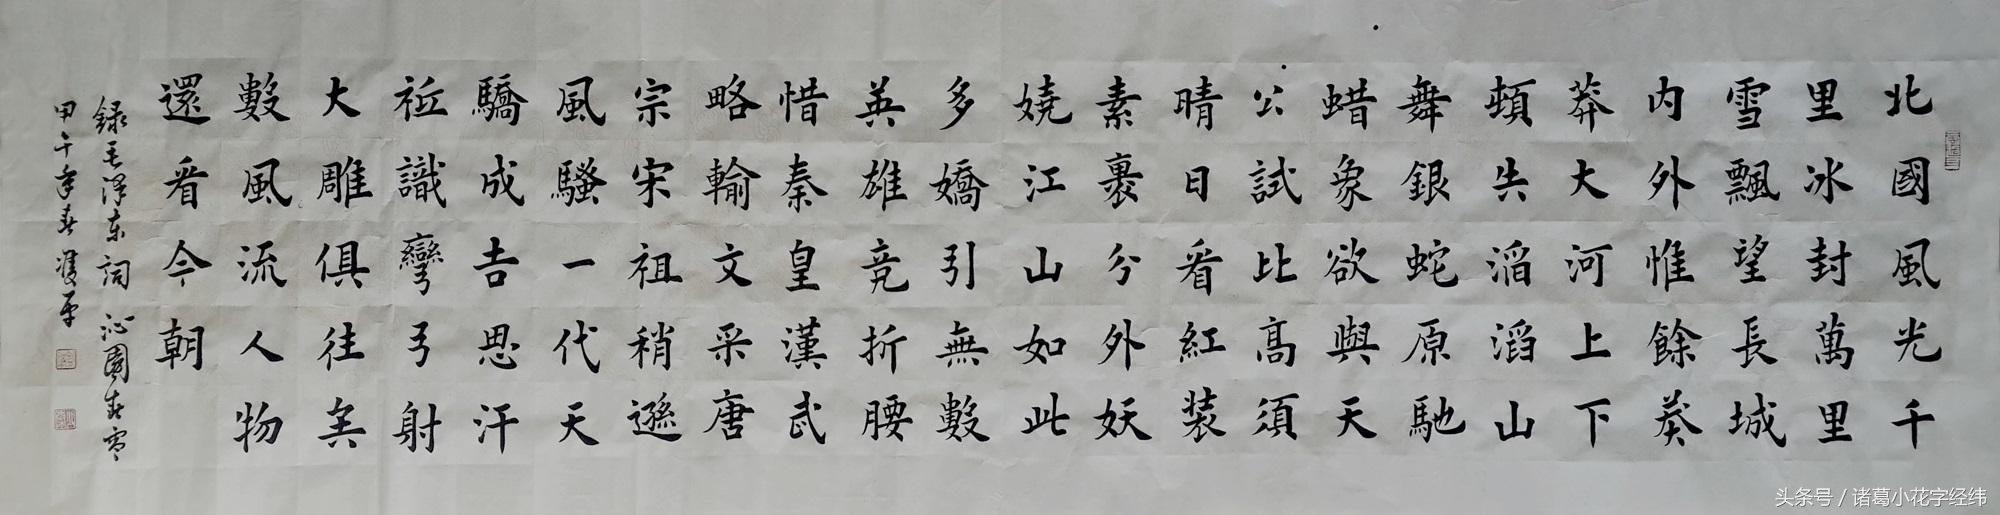 北國風光千
里冰封萬里
雪飄望長城
内外惟餘莽
莽大河上下
頓失滔滔山
舞銀蛇原馳
蜡象欲與天
公試比高須
晴日看紅装
素裹分外妖
嬈江山如此
多嬌引無數
英雄竞折腰
惜秦皇漢武
略輸文采唐
宗宋祖稍遜
風騷一代天
驕成吉思汗
袛識彎弓射
大雕俱往矣
數風流人物
還看今朝
録毛澤東詞沁園春雪
甲午年春
头条号 / 诸葛小花字经纬